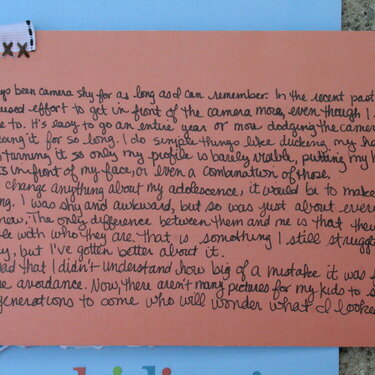 ays been camera shy for as long as I can remember. In the recent past
used effort to get in front of the camera more, even though I
e to. It's easy to go an entire year or more dodging the came
oing it for so long. I do simple things like ducking my he
turning it so only my profile is barely visible, putting my h
ts in front of my face, or even a combination of those.
change anything about my adolescence, it would be to make
ng. I was shy and awkward, but so was just about ever
now. The only difference between them and me is that the
le with who they are. That is something I still struggl
y, but I've gotten better about it.
ad that I didn't understand how big of a mistake it was f
e avoidance. Now, there aren't many pictures for my kids to s
generations to come who will wonder what I looke